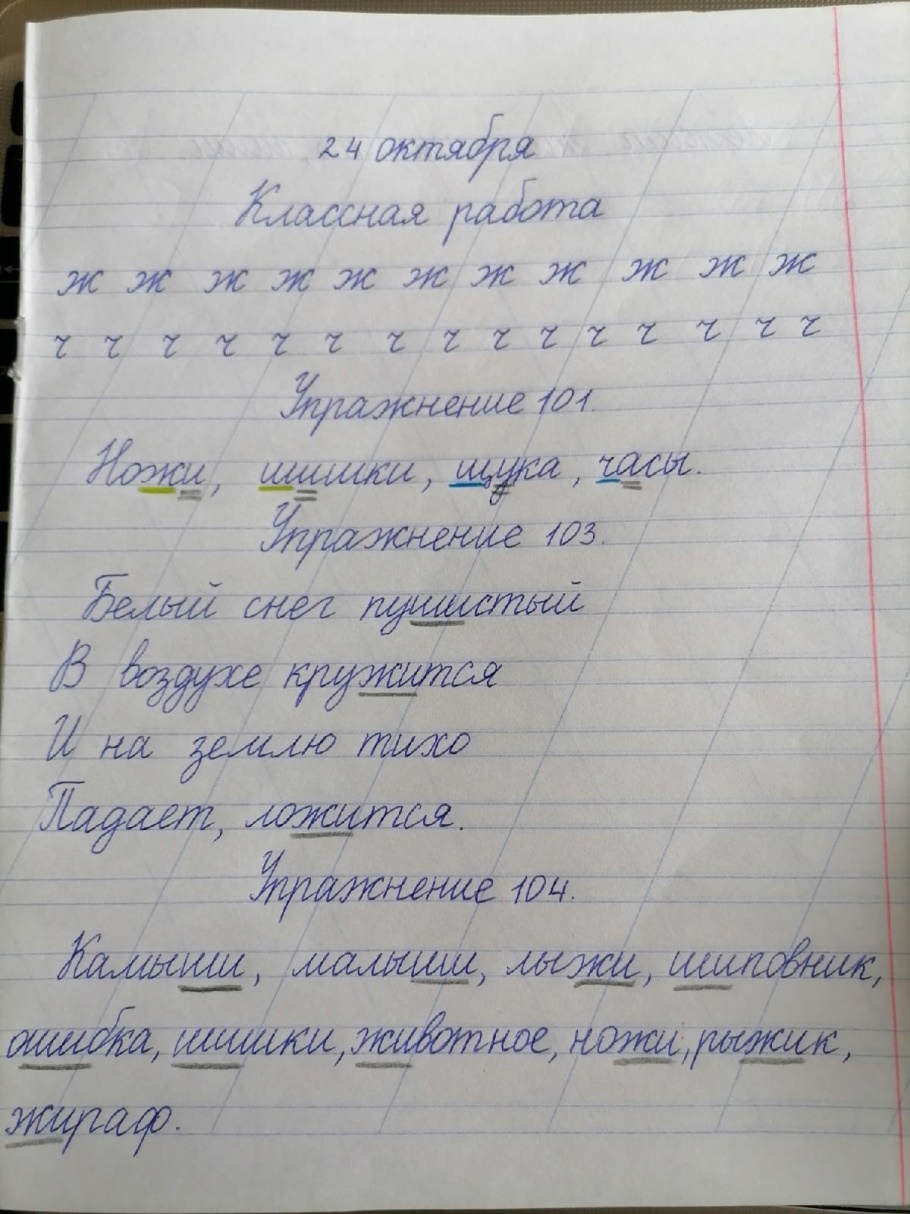 24 октября
Классная работа
ж ж ж ж ж ж ж ж ж ж ж
ч ч ч ч ч ч ч ч ч ч ч ч ч ч ч
Упражнение 101.
Ножи, шишки, щука, часы.
Упражнение 103.
Белый снег пушистый
В воздухе кружится
И на землю тихо
Падает, ложится.
Упражнение 104.
Камыши, малыши, лыжи, шиповник,
ошибка, шишки, животное, ножи, рыжик,
жираф.